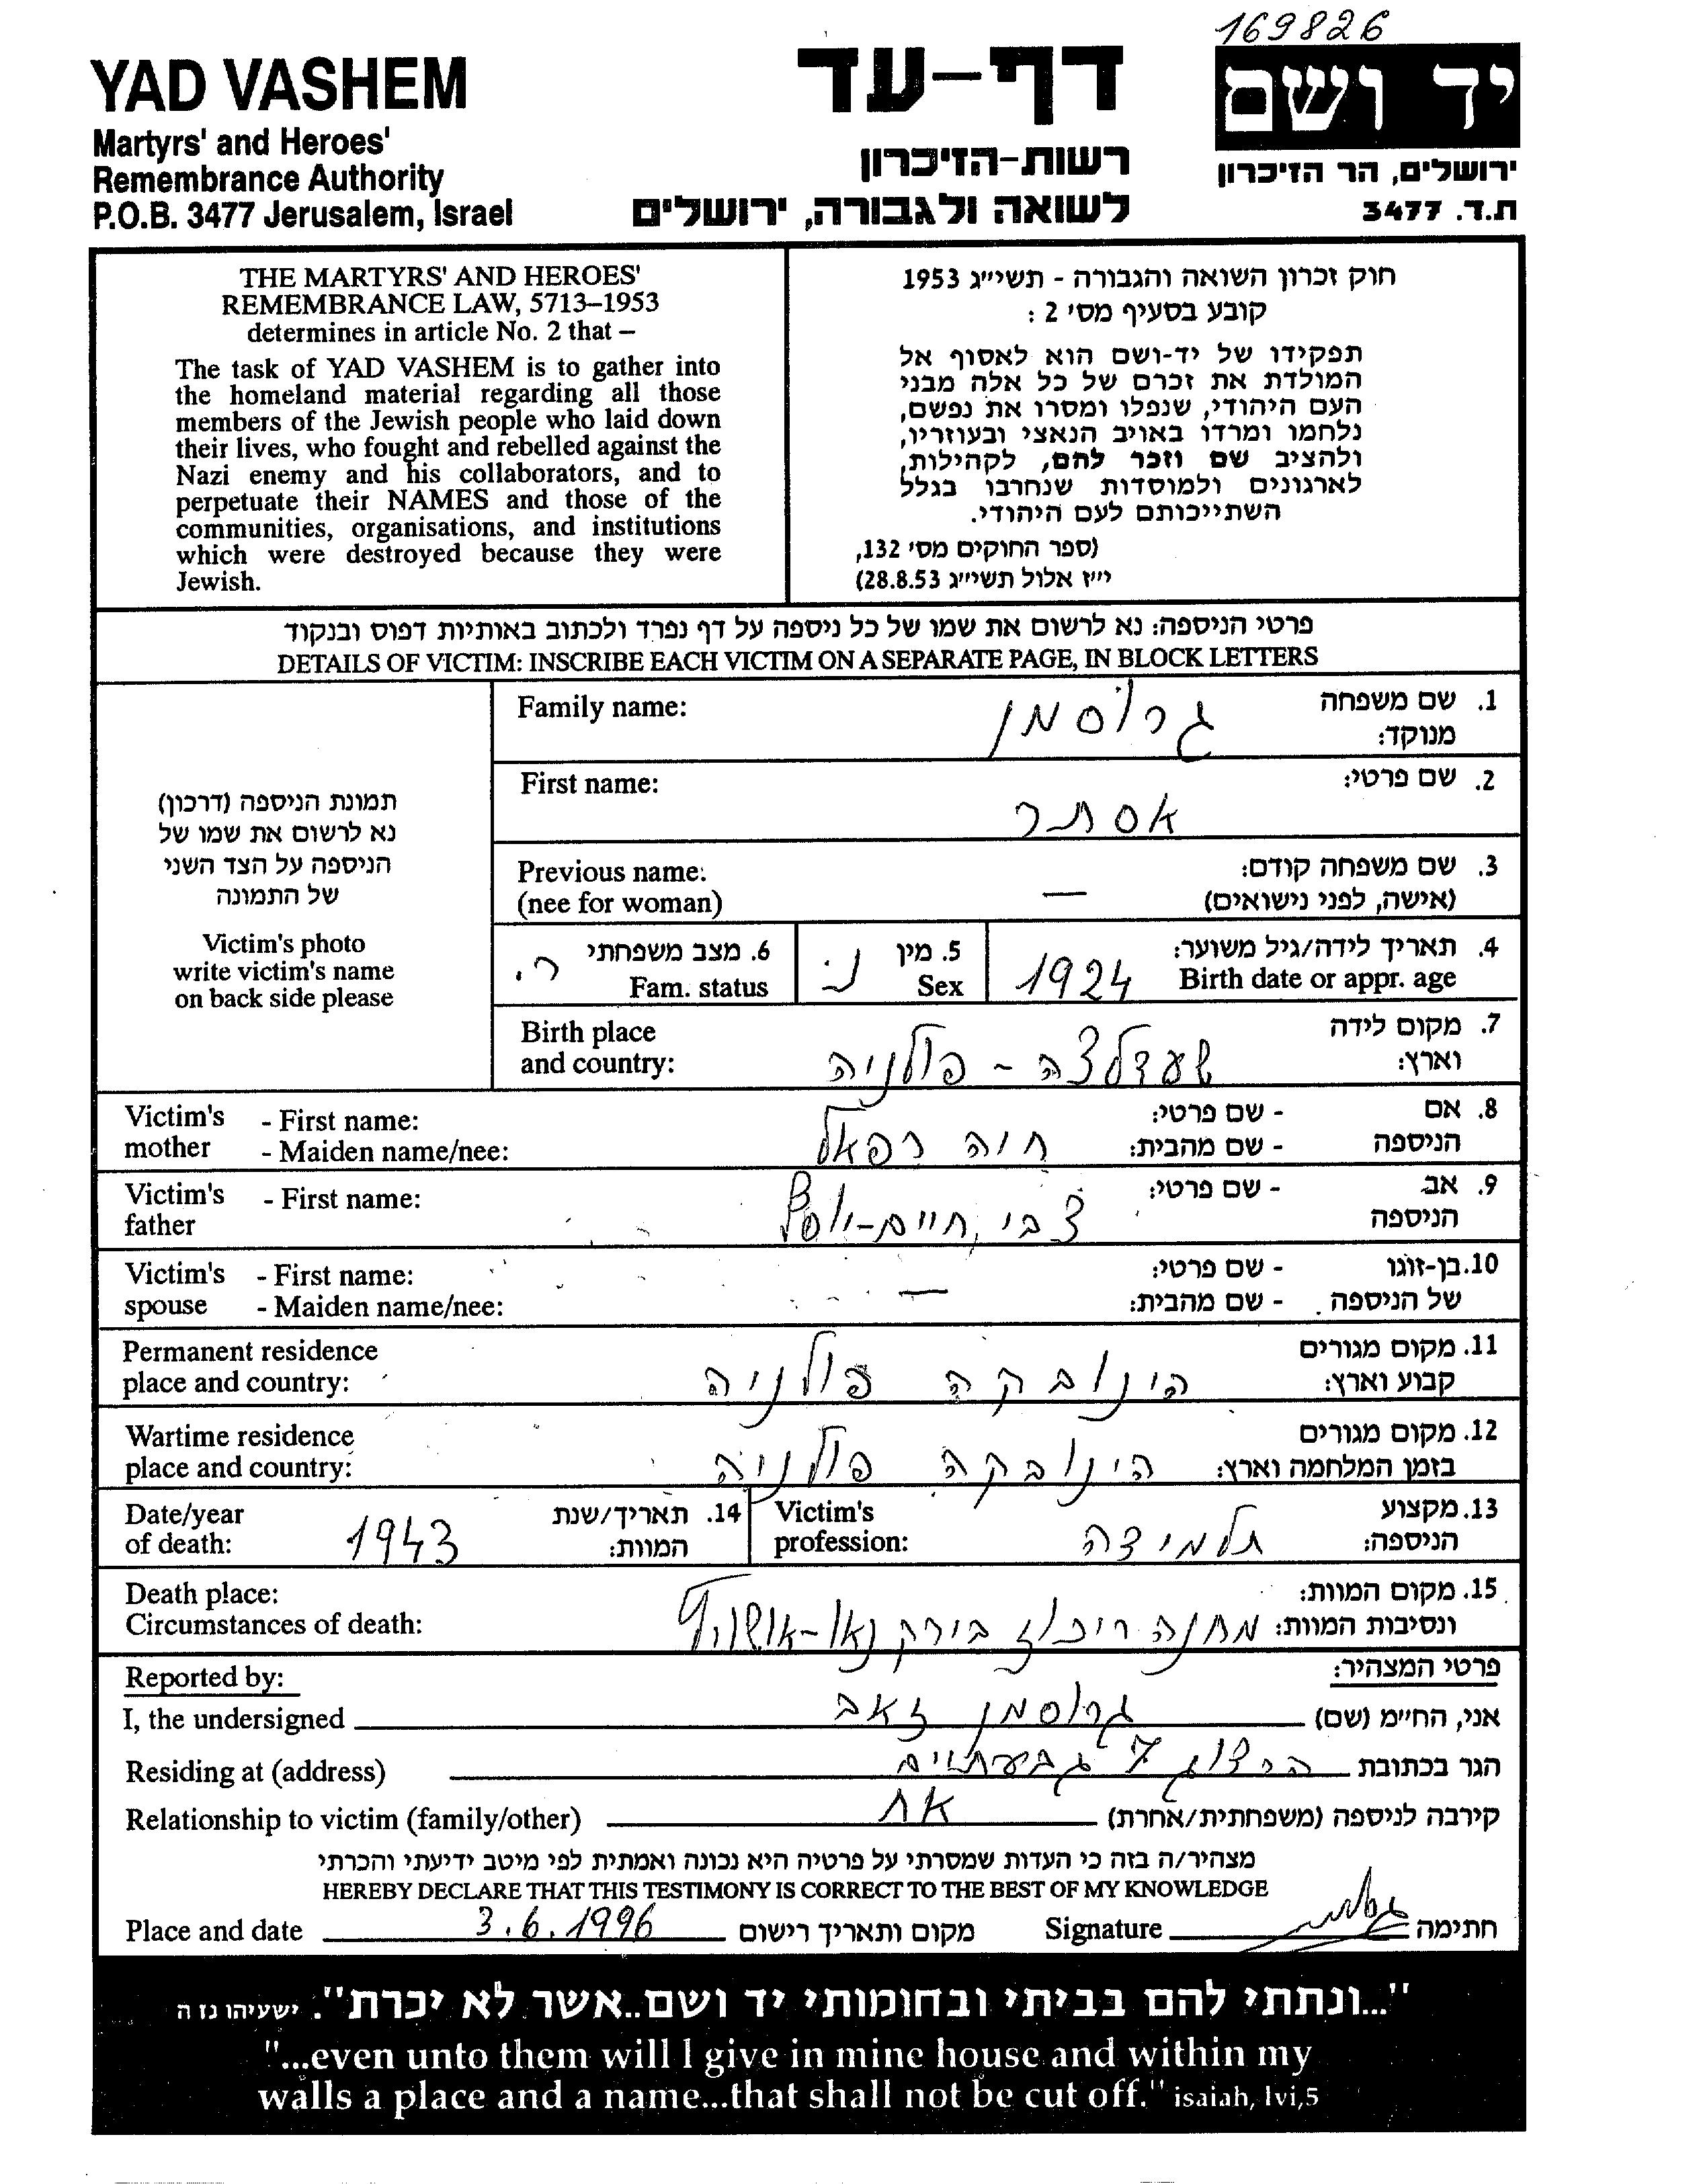 169826
YAD VASHEM
Martyrs' and Heroes'
Remembrance Authority
P.O.B. 3477 Jerusalem, Israel
דף-עד
רשות-הזיכרון
לשואה ולגבורה, ירושלים
יד ושם
ירושלים, הר הזיכרון
ת.ד. 3477
THE MARTYRS' AND HEROES'
REMEMBRANCE LAW, 5713–1953
determines in article No. 2 that –
The task of YAD VASHEM is to gather into
the homeland material regarding all those
members of the Jewish people who laid down
their lives, who fought and rebelled against the
Nazi enemy and his collaborators, and to
perpetuate their NAMES and those of the
communities, organisations, and institutions
which were destroyed because they were
Jewish.
חוק זכרון השואה והגבורה - תשי״ג 1953
קובע בסעיף מס' 2 :
תפקידו של יד-ושם הוא לאסוף אל
המולדת את זכרם של כל אלה מבני
העם היהודי, שנפלו ומסרו את נפשם,
נלחמו ומרדו באויב הנאצי ובעוזריו,
ולהציב שם וזכר להם, לקהילות,
לארגונים ולמוסדות שנחרבו בגלל
השתייכותם לעם היהודי.
(ספר החוקים מס' 132,
י״ז אלול תשי״ג 28.8.53)
פרטי הניספה: נא לרשום את שמו של כל ניספה על דף נפרד ולכתוב באותיות דפוס ובנקוד
DETAILS OF VICTIM: INSCRIBE EACH VICTIM ON A SEPARATE PAGE, IN BLOCK LETTERS
תמונת הניספה (דרכון)
נא לרשום את שמו של
הניספה על הצד השני
של התמונה
Victim's photo
write victim's name
on back side please
1. שם משפחה
מנוקד:
Family name: גרוסמן
2. שם פרטי: First name:
אסתר
3. שם משפחה קודם: Previous name:
(אישה, לפני נישואים) — (nee for woman)
4. תאריך לידה/גיל משוער: 5. מין 6. מצב משפחתי
Birth date or appr. age 1924 Sex נ. Fam. status ר.
7. מקום לידה Birth place
וארץ: and country: שעדלצה - פולניה
8. אם - שם פרטי: Victim's - First name:
הניספה - שם מהבית: mother - Maiden name/nee: חוה רפאל
9. אב - שם פרטי: Victim's - First name:
הניספה father צבי, חיים-יוסף
10. בן-זוגו - שם פרטי: Victim's - First name:
של הניספה - שם מהבית: spouse - Maiden name/nee: —
11. מקום מגורים Permanent residence
קבוע וארץ: place and country: הינובקה פולניה
12. מקום מגורים Wartime residence
בזמן המלחמה וארץ: place and country: הינובקה פולניה
13. מקצוע Victim's
הניספה: profession: תלמידה
14. תאריך/שנת Date/year
המוות: of death: 1943
15. מקום המוות: Death place:
ונסיבות המוות: Circumstances of death: מחנה ריכוז בירקנאו-אושוויץ
פרטי המצהיר: Reported by:
אני, החי״מ (שם) I, the undersigned גרוסמן זאב
הגר בכתובת Residing at (address) הרצוג 7 גבעתיים
קירבה לניספה (משפחתית/אחרת) Relationship to victim (family/other) אח
מצהיר/ה בזה כי העדות שמסרתי על פרטיה היא נכונה ואמתית לפי מיטב ידיעתי והכרתי
HEREBY DECLARE THAT THIS TESTIMONY IS CORRECT TO THE BEST OF MY KNOWLEDGE
Place and date 3.6.1996 מקום ותאריך רישום Signature חתימה
"...ונתתי להם בביתי ובחומותי יד ושם..אשר לא יכרת". ישעיהו נו ה
"...even unto them will I give in mine house and within my
walls a place and a name...that shall not be cut off." isaiah, lvi,5